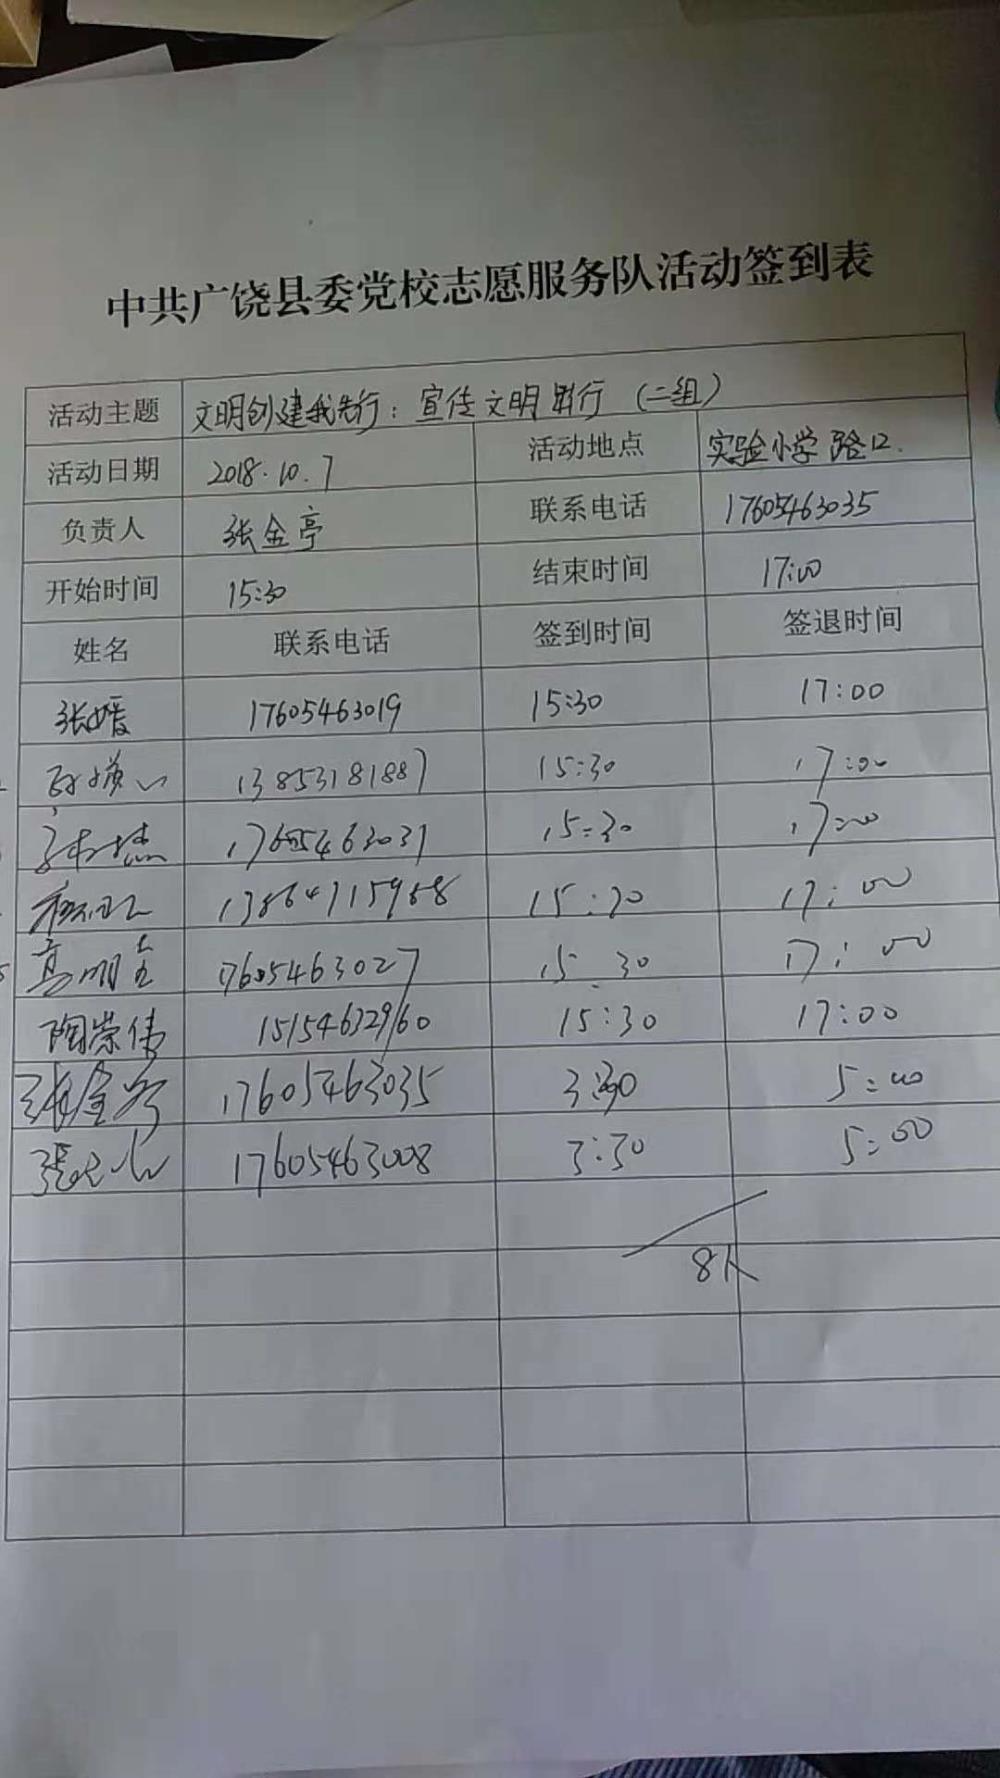 中共广饶县委党校志愿服务队活动签到表
活动主题 文明创建我先行：宣传文明出行（二组）
活动日期 2018.10.7 活动地点 实验小学路口.
负责人 张金亭 联系电话 17605463035
开始时间 15:30 结束时间 17:00
姓名 联系电话 签到时间 签退时间
张媛 17605463019 15:30 17:00
13853181887 15:30 17:00
17605463031 15:30 17:00
13864715968 15:30 17:00
17605463027 15 30 17:00
陶崇伟 15154632960 15:30 17:00
张金亭 17605463035 3:30 5:00
17605463008 3:30 5:00
8人